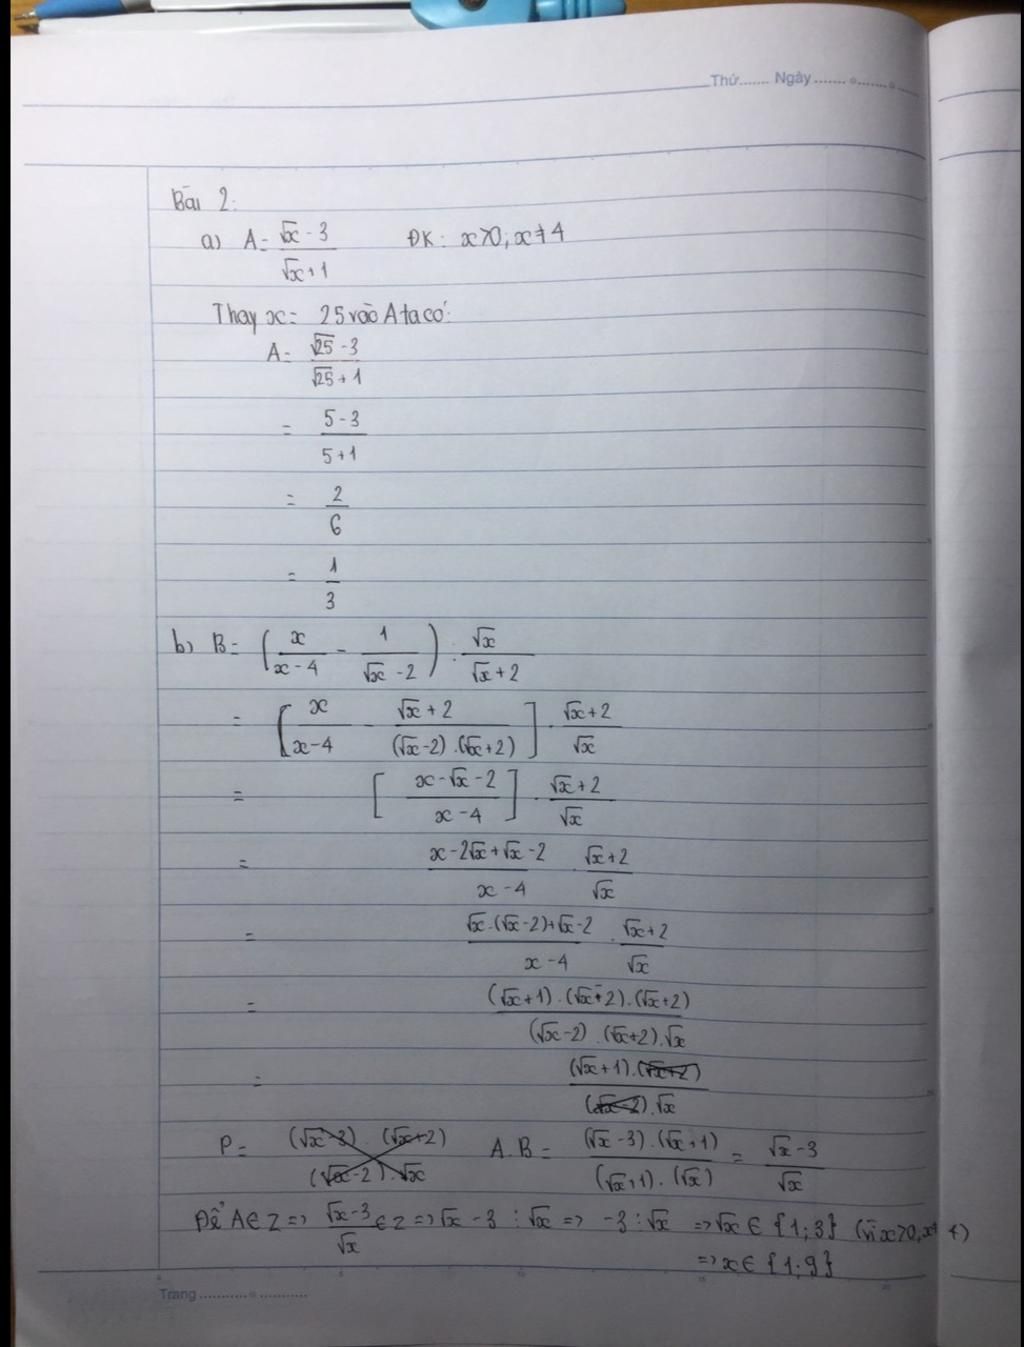 Thứ....... Ngày.......
Bài 2:
a) A = (√x - 3)/(√x + 1)   ĐK: x>0; x≠4
Thay x = 25 vào A ta có:
A = (√25 - 3)/(√25 + 1)
= (5 - 3)/(5 + 1)
= 2/6
= 1/3
b) B = (x/(x - 4) - 1/(√x - 2)) : √x/(√x + 2)
= [x/(x - 4) - (√x + 2)/((√x - 2).(√x + 2))] . (√x + 2)/√x
= [(x - √x - 2)/(x - 4)] . (√x + 2)/√x
= (x - 2√x + √x - 2)/(x - 4) . (√x + 2)/√x
= (√x.(√x - 2) + √x - 2)/(x - 4) . (√x + 2)/√x
= ((√x + 1).(√x - 2).(√x + 2))/((√x - 2).(√x + 2).√x)
= ((√x + 1).(√x + 2))/((√x - 2).√x)
P = ((√x - 3).(√x + 2))/((√x - 2).√x)   A.B = ((√x - 3).(√x + 1))/((√x + 1).(√x)) = (√x - 3)/√x
Để A∈Z => (√x - 3)/√x ∈ Z => √x - 3 ⋮ √x => -3 ⋮ √x => √x ∈ {1; 3} (vì x>0, x≠4)
=> x ∈ {1; 9}
Trang ......................